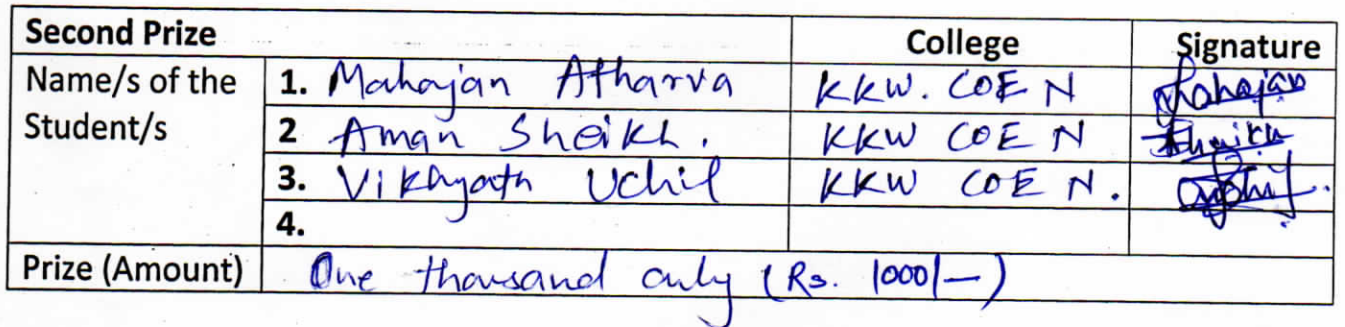 Second Prize College Signature
Name/s of the 1. Mahajan Atharva KKW. COE N Mahajan
Student/s 2 Aman Sheikh. KKW COE N Shaikh
3. Vikhyath Uchil KKW COE N.
4.
Prize (Amount) One thousand only (Rs. 1000/-)